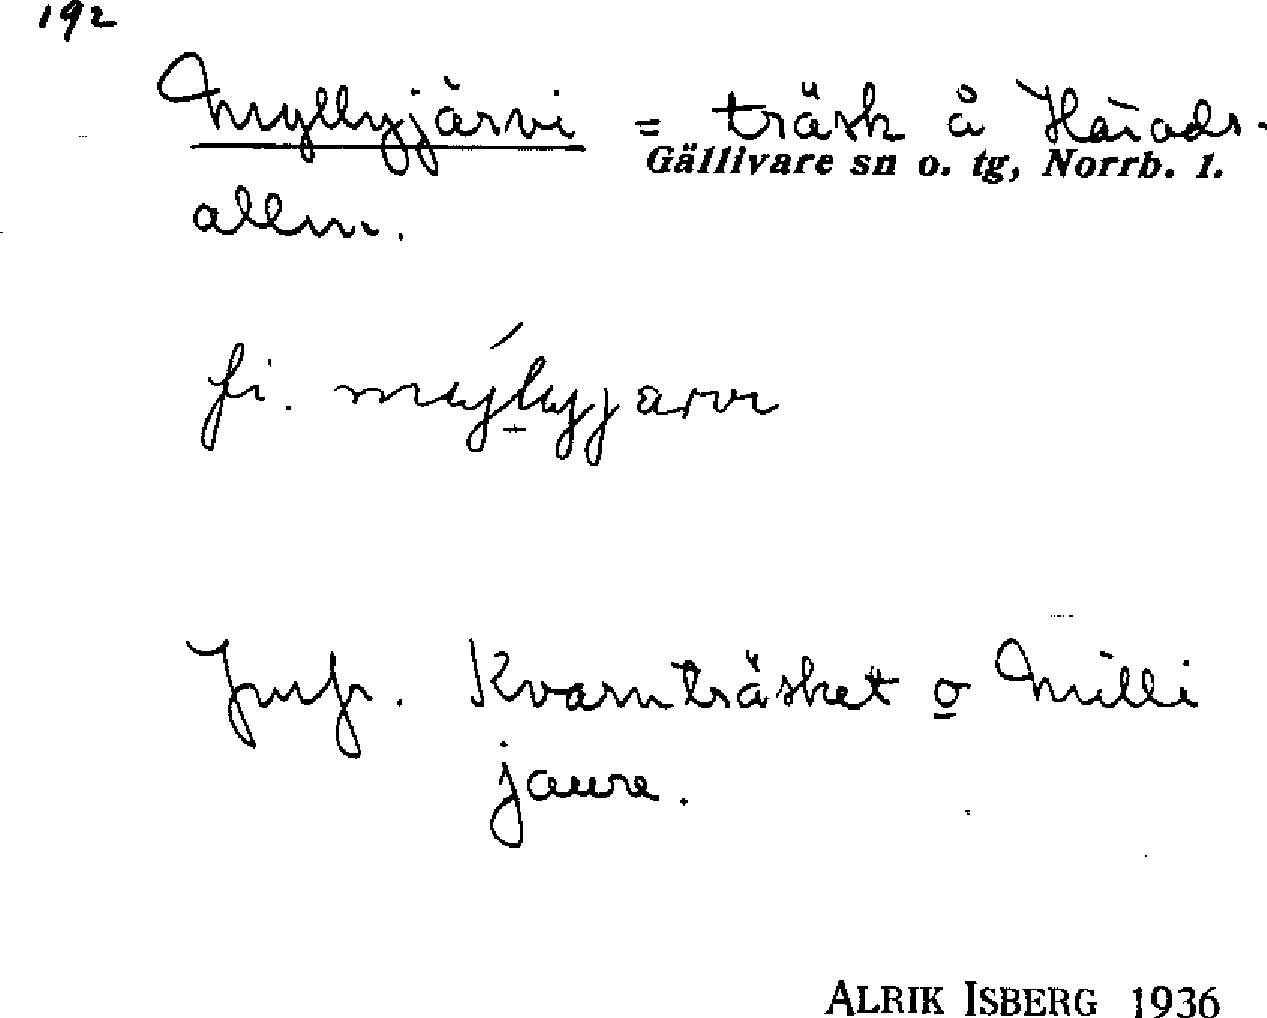 192
Myllyjärvi = träsk å Härads-
Gällivare sn o. tg, Norrb. l.
allm.
fi. mýllyjarvi
Jmfr. Kvarnträsket o Milli
jaure.
ALRIK ISBERG 1936